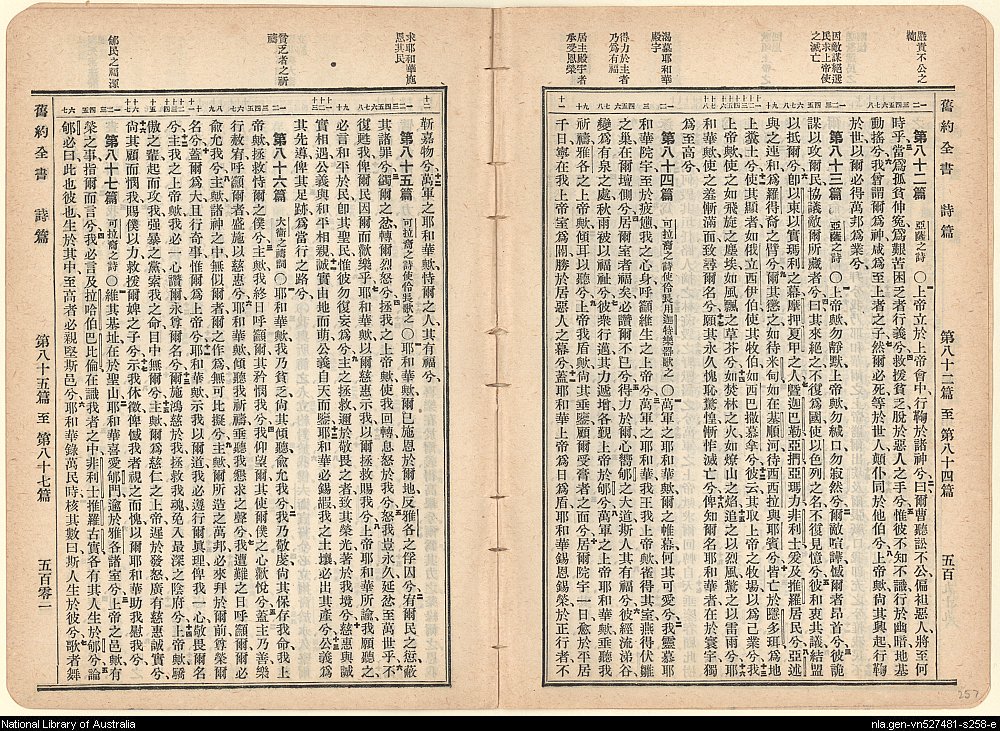 嚴責不公之鞫
因敵謀絕選民求上帝使之滅亡
渴慕耶和華殿宇
得力於主者乃為有福
居主殿宇者承受恩榮
舊約全書 詩篇 第八十二篇 至 第八十四篇 五百
第八十二篇 亞薩之詩 ○上帝立於上帝會中、行鞫於諸神兮、曰爾曹聽訟不公、偏袒惡人、將至何
時乎、當為孤貧伸冤、為艱苦困乏者行義兮、救援貧乏、脫於惡人之手兮、惟彼不知不識、行於幽暗、地基
動搖兮、我曾謂爾為神、咸為至上者之子、然爾必死、等於世人、顛仆同於他伯兮、上帝歟、尚其興起、行鞫
於世、以爾必得萬邦為業兮、
第八十三篇 亞薩之詩 ○上帝歟勿靜默、上帝歟、勿緘口、勿寂然兮、爾敵喧譁、憾爾者昂首兮、彼詭
謀以攻爾民、協議敵爾所藏者兮、曰其來絕之、不復為國、使以色列之名、不復見憶兮、彼和衷共議、結盟
以抵爾兮、卽以東以實瑪利之幕、摩押夏甲之人、曁迦巴勒亞捫亞瑪力、非利士、爰及推羅居民兮、亞述
與之連和、為羅得裔之臂兮、爾其懲之、如待米甸、如在基順河待西西拉與耶賓兮、皆亡於隱多珥、為地
上糞土兮、使其顯者如俄立西伊伯、使其牧伯如西巴撒慕拿兮、彼云其取上帝之牧場、以為己業兮、我
上帝歟、使之如飛旋之塵埃、如風飄之草芥兮、如焚林之火、如燎山之焰、追之以烈風、驚之以雷雨兮、耶
和華歟、使之羞慚滿面、致尋爾名兮、願其永久愧恥驚惶、慚怍滅亡兮、俾知爾名耶和華者、在於寰宇、獨
為至高兮、
第八十四篇 可拉裔之詩使伶長用迦特樂器歌之 ○萬軍之耶和華歟、爾之帷幕、何其可愛兮、我靈慕耶
和華院宇、至於疲憊、我之心身、呼籲維生之上帝兮、萬軍之耶和華、我王我上帝歟、雀得其室、燕得伏雛
之巢、在爾壇側兮、居爾室者福矣、必讚爾不已兮、得力於爾、心嚮郇之大道、斯人其有福兮、彼經流涕谷、
變為有泉之處、秋雨被以福祉兮、彼衆行邁、其力遞增、各覲上帝於郇兮、萬軍之上帝耶和華歟、垂聽我
祈禱、雅各之上帝歟、傾耳以聽兮、上帝我盾歟、尚其垂顧、爾受膏者之面兮、居爾院宇一日、愈於平居
千日、寧在我上帝室為閽、勝於居惡人之幕兮、蓋耶和華上帝、為日為盾、耶和華錫恩錫榮、於正行者不
求耶和華施恩其民
貧乏者之祈禱
郇民之福源
靳嘉物兮、萬軍之耶和華歟、恃爾之人、其有福兮、
第八十五篇 可拉裔之詩使伶長歌之 ○耶和華歟、爾已施恩於爾地、反雅各之俘囚兮、宥爾民之愆、蔽
其諸罪兮、蠲爾之忿、轉爾烈怒兮、拯我之上帝歟、使我回轉、息怒於我兮、怒我豈永久、延忿至萬世乎、不
復甦我、俾爾民因爾而歡樂乎、耶和華歟、以爾慈惠示我、以爾拯救賜我兮、上帝耶和華所諭、我願聽之、
必言和平於民、卽其聖民、惟彼勿復妄為兮、主之拯救、邇於敬畏之者、致其榮光、著於我境兮、慈惠與誠
實相遇、公義與和平相親、誠實由地而萌、公義自天而鑒、耶和華必錫嘏、我之土壤、必出其產兮、公義為
其先導、俾其足跡、為當行之路兮、
第八十六篇 大衛之禱詞 ○耶和華歟、我乃貧乏、尚其傾聽俞允我兮、我乃敬虔、尚其保存我命、我上
帝歟、拯救恃爾之僕兮、主歟、我終日呼籲爾、其矜憫我兮、我仰望爾、其使爾僕之心歡悅兮、蓋主乃善、樂
行赦宥、呼籲爾者、盛施以慈惠兮、耶和華歟、傾聽我祈禱、垂聽我懇求之聲兮、我遭難之日、呼籲爾、爾必
俞允我兮、主歟、諸神之中、無似爾者、爾之作為、無可比擬兮、主歟、爾所造之萬邦、必來拜於爾前、尊榮爾
名兮、蓋爾為大、且行奇事、惟爾為上帝兮、耶和華歟、示我以爾道、我必遵行爾真理、俾我一心、敬畏爾名
兮、主我之上帝歟、我必一心讚爾、永尊爾名兮、爾施鴻慈於我、拯救我魂、免入最深之陰府兮、上帝歟、驕
傲之輩、起而攻我、強暴之黨、索我之命、目中無爾兮、主歟、爾為慈仁之上帝、遲於發怒、廣有慈惠誠實兮、
尚其顧而憫我、賜爾僕以力、救援爾婢之子兮、示我休徵、俾憾我者視之而愧、以耶和華助我慰我兮、
第八十七篇 可拉裔之詩 ○維其基址、在於聖山、耶和華喜愛郇門、逾於雅各諸室兮、上帝之邑歟、有
榮之事、指爾而言兮、我必言及拉哈伯巴比倫在識我者之中、非利士推羅古實、各有其人生於郇兮、論
郇必曰、此也彼也、生於其中、至高者必親堅斯邑兮、耶和華錄萬民時、核其數曰、斯人生於彼兮、歌者舞
舊約全書 詩篇 第八十五篇 至 第八十七篇 五百零一
257
National Library of Australia
nla.gen-vn527481-s258-e